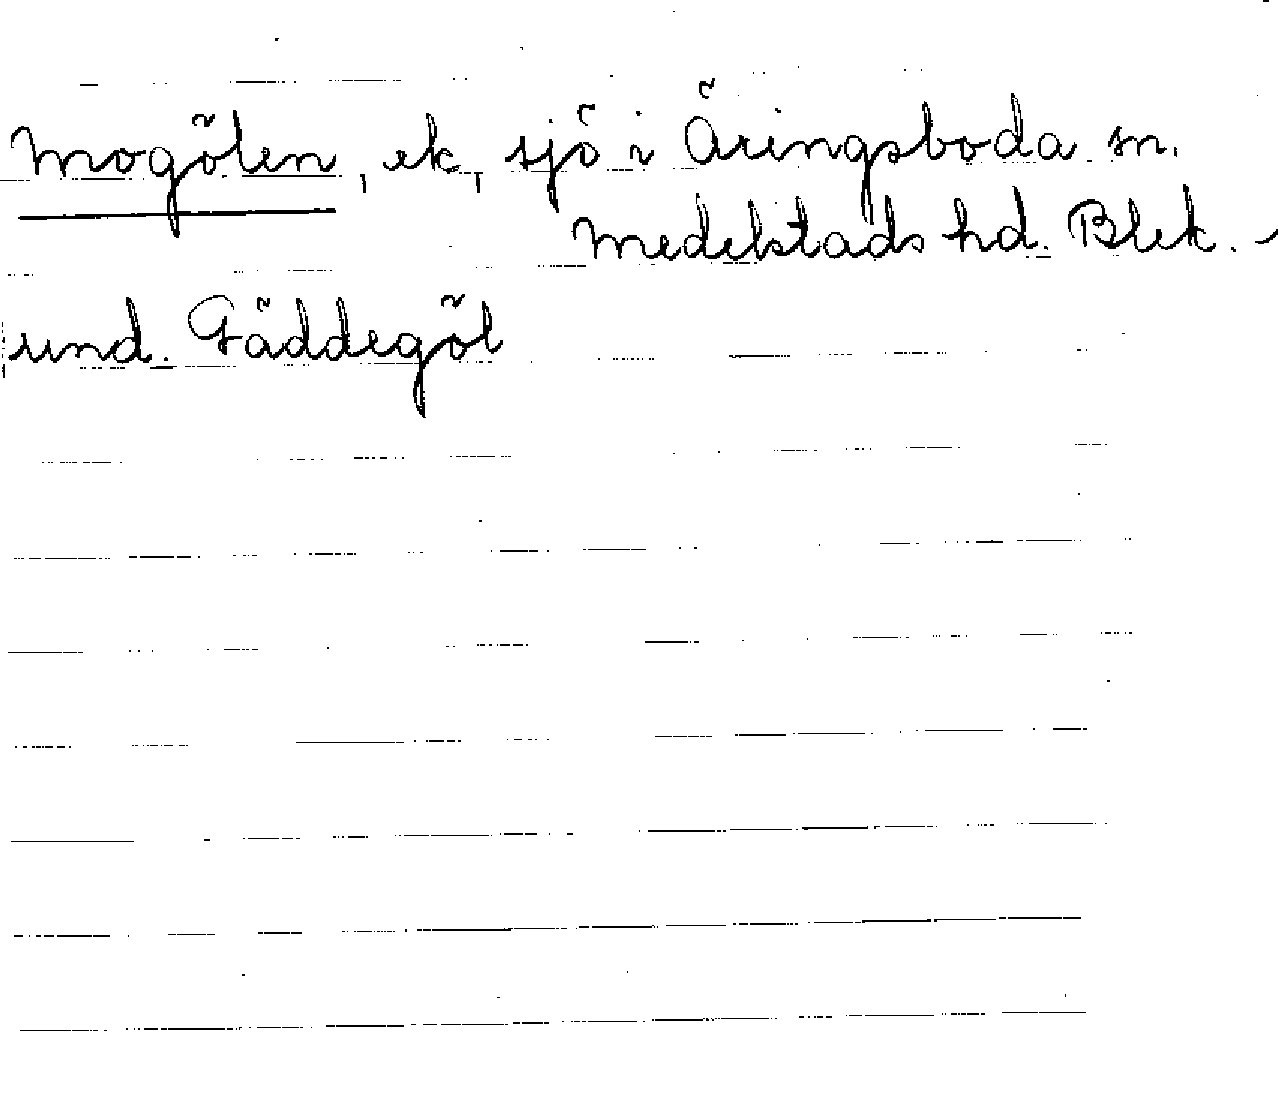 Mogölen, ek, sjö i Äringsboda sn.
Medelstads hd. Blek. -
und. Gäddegöl